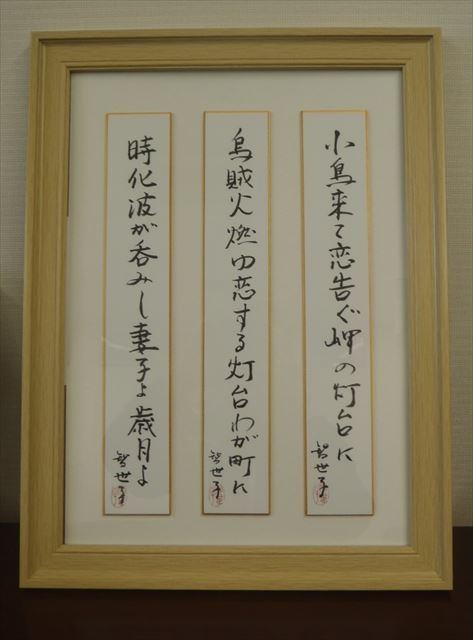 小鳥来て恋告ぐ岬の灯台に
智世子
烏賊火燃ゆ恋する灯台わが町に
智世子
時化波が呑みし妻子よ歳月よ
智世子